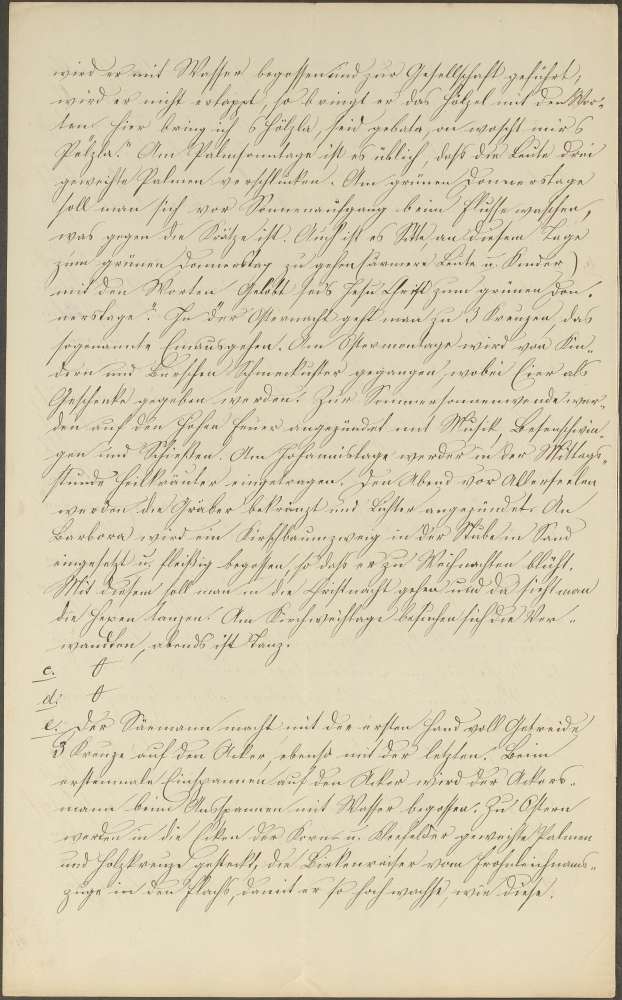 wird er mit Wasser begossen und zur Gesellschaft geführt,
wird er nicht ertappt, so bringt er das Hölzel mit den Wor-
ten „Hier bring ich s Hölzla, seid gebata, on woscht mir s
Pelzla." Am Palmsonntage ist es üblich, daß die Leute drei
geweihte Palmen verschlucken. Am grünen Donnerstage
soll man sich vor Sonnenaufgang beim Flusse waschen,
was gegen die Krätze ist. Auch ist es Sitte, an diesem Tage
zum grünen Donnerstag zu gehen (ärmere Leute u. Kinder)
mit den Worten „Gelobt seis Jesu Christ zum grünen Don-
nerstage". In der Osternacht geht man zu 3 Kreuzen, das
sogenannte Emausgehen. Am Ostermontage wird von Kin-
dern und Burschen Schmeckuster gegangen, wobei Eier als
Geschenke gegeben werden. Zur Sommersonnenwende wer-
den auf den Höhen Feuer angezündet mit Musik, Besenschwin-
gen und Schießen. Am Johannistage werden in der Mittags-
stunde Heilkräuter eingetragen. Den Abend vor Allerseelen
werden die Gräber bekränzt und Lichter angezündet. An
Barbora wird ein Kirschbaumzweig in der Stube in Sand
eingesetzt u. fleißig begossen, so daß er zu Weihnachten blüht.
Mit diesem soll man in die Christnacht gehen und da sieht man
die Hexen tanzen. Am Kirchweihtage besuchen sich die Ver-
wandten, abends ist Tanz.
c.
d.
e. Der Säemann macht mit der ersten Hand voll Getreide
3 Kreuze auf den Acker, ebenso mit der letzten. Beim
erstenmale Einspannen auf den Acker wird der Ackers-
mann beim Ausspannen mit Wasser begossen. Zu Ostern
werden in die Ecken der Korn- u. Kleefelder geweihte Palmen
und Holzkreuze gesteckt, die Birkenreiser vom Frohnleichnams-
zuge in den Flachs, damit er so hoch wachse, wie diese.